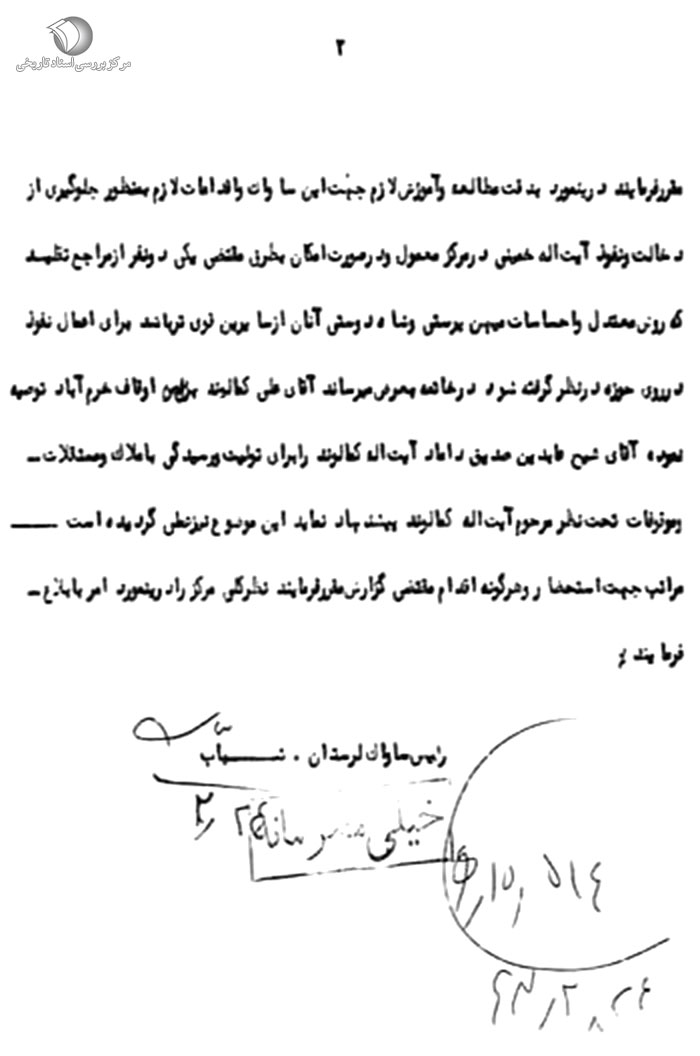 مرکز بررسی اسناد تاریخی
۲
مقررفرمایند دراینمورد بدقت مطالعه وآموزش لازم جهت این ساواک واقدامات لازم بمنظور جلوگیری از
دخالت ونفوذ آیت اله خمینی درمرکز معمول ودرصورت امکان بطرق مقتضی یکی دونفر ازمراجع تقلید
که روش معتدل واحساسات میهن پرستی وشاه دوستی آنان ازسایرین قوی ترباشد برای اعمال نفوذ
درروی حوزه درنظر گرفته شود درخاتمه بعرض میرساند آقای علی کمالوند اوقاف خرم آباد توصیه
نموده آقای شیخ عابدین صدیق داماد آیت اله کمالوند رابرای تولیت ورسیدگی باملاک ومستغلات ـ
وموقوفات تحت نظر مرحوم آیت اله کمالوند پیشنهاد نماید این موضوع نیزتلقی گردیده است ـــــ
مراتب جهت استحضار وهرگونه اقدام مقتضی گزارش مقررفرمایند نظرکلی مرکز رادراینمورد امر بابلاغ ـ
فرمایند
رئیس ساواک لرستان ۰
خیلی